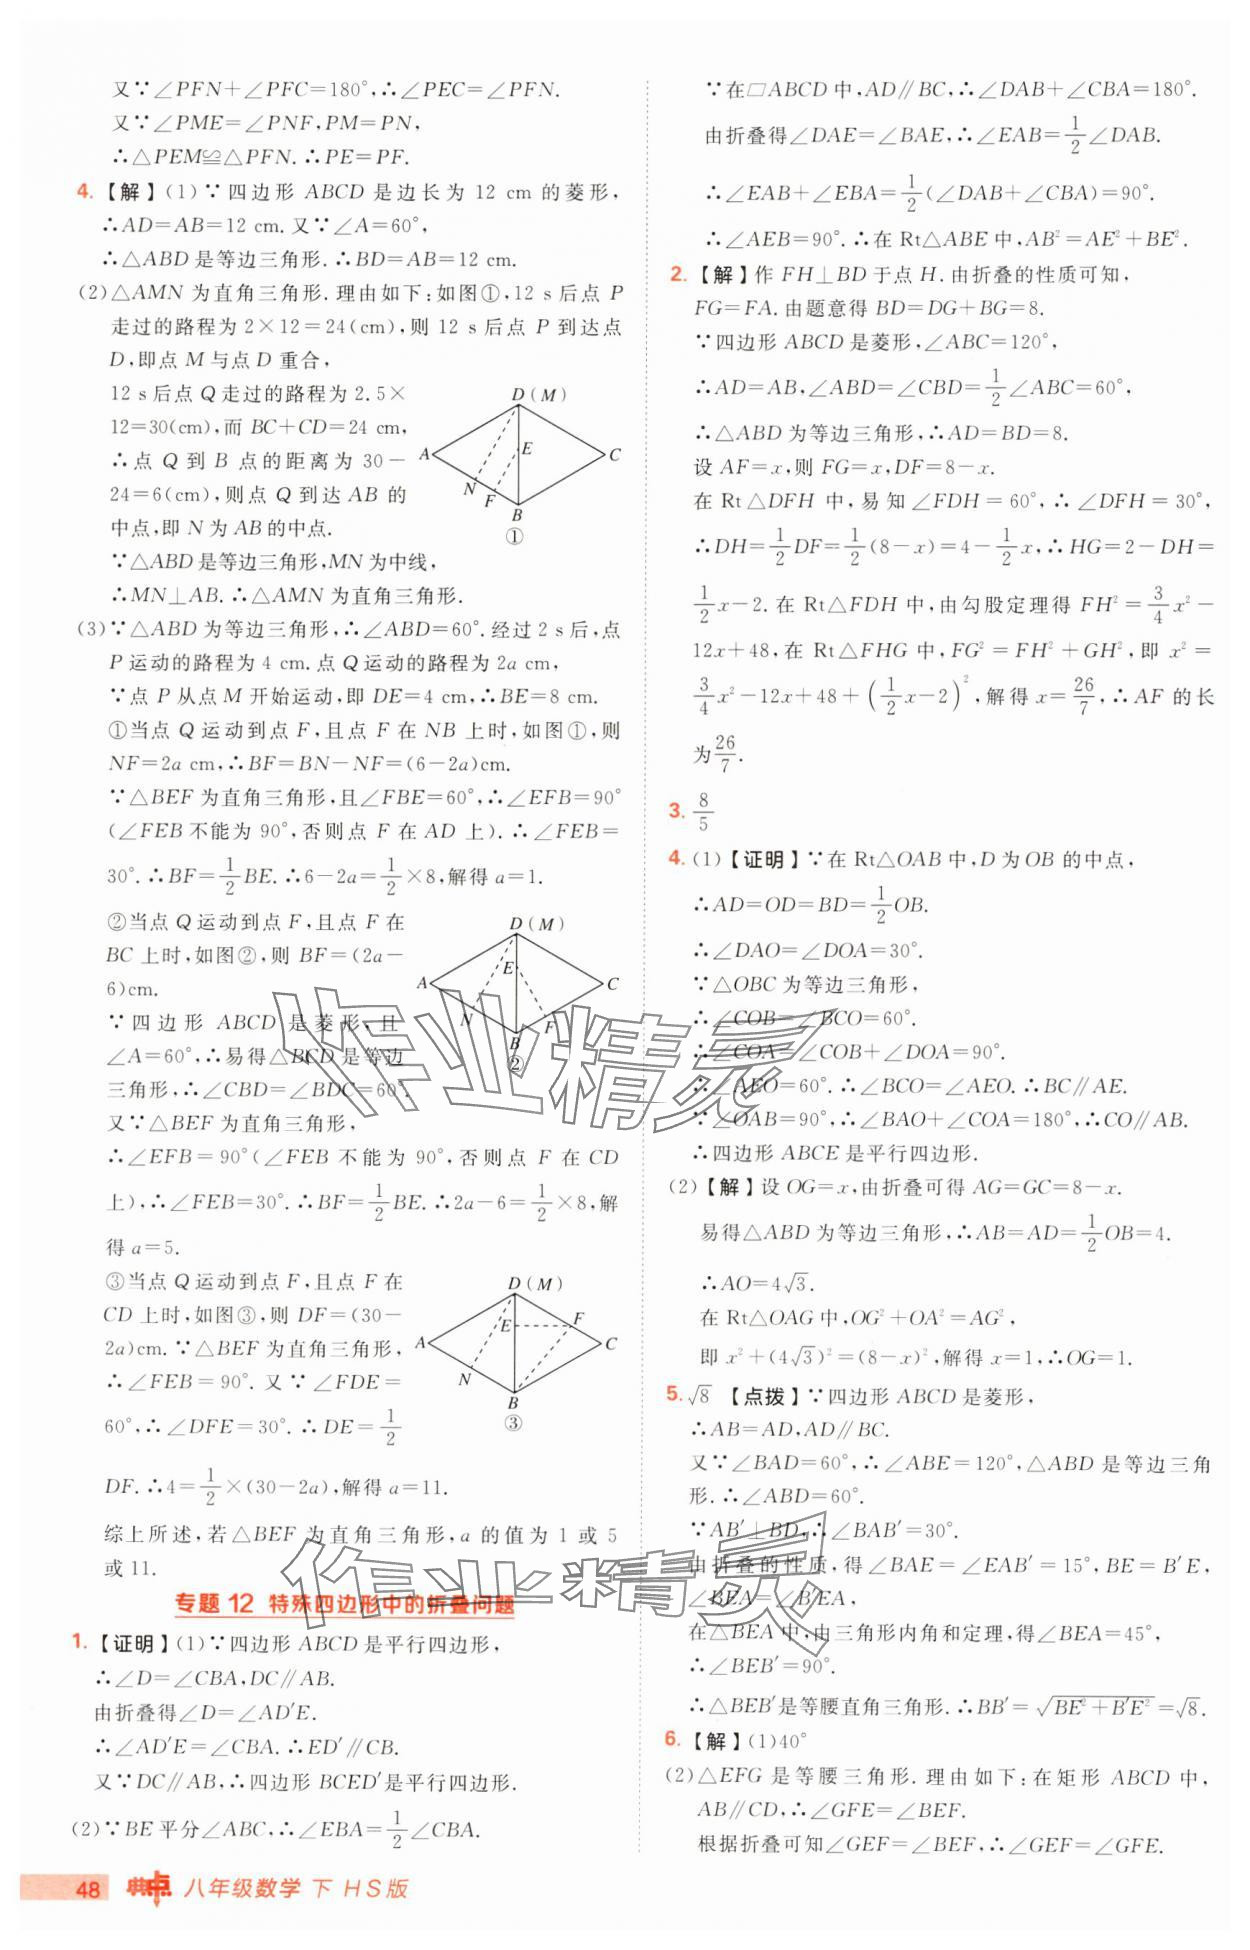 又∵∠PFN+∠PFC=180°,∴∠PEC=∠PFN.
又∵∠PME=∠PNF,PM=PN,
∴△PEM≌△PFN.∴PE=PF.
4.【解】(1)∵四边形 ABCD 是边长为 12 cm 的菱形,
∴AD=AB=12 cm.又∵∠A=60°,
∴△ABD 是等边三角形.∴BD=AB=12 cm.
(2)△AMN 为直角三角形.理由如下:如图①,12 s后点 P
走过的路程为 2×12=24(cm),则 12 s后点 P 到达点
D,即点 M 与点 D 重合,
12 s后点 Q 走过的路程为 2.5×
12=30(cm),而 BC+CD=24 cm,
∴点 Q 到 B 点的距离为 30-
24=6(cm),则点 Q 到达 AB 的
中点,即 N 为 AB 的中点.
D(M)
A
E
C
N
F
B
①
∵△ABD 是等边三角形,MN 为中线,
∴MN⊥AB.∴△AMN 为直角三角形.
(3)∵△ABD 为等边三角形,∴∠ABD=60°.经过 2 s后,点
P 运动的路程为 4 cm.点 Q 运动的路程为 2a cm,
∵点 P 从点 M 开始运动,即 DE=4 cm,∴BE=8 cm.
①当点 Q 运动到点 F,且点 F 在 NB 上时,如图①,则
NF=2a cm,∴BF=BN-NF=(6-2a)cm.
∵△BEF 为直角三角形,且∠FBE=60°,∴∠EFB=90°
(∠FEB 不能为 90°,否则点 F 在 AD 上).∴∠FEB=
30°.∴BF=1/2BE.∴6-2a=1/2×8,解得 a=1.
②当点 Q 运动到点 F,且点 F 在
BC 上时,如图②,则 BF=(2a-
6)cm.
∵四边形 ABCD 是菱形,且
∠A=60°,∴易得△BCD 是等边
三角形,∴∠CBD=∠BDC=60°.
D(M)
A
E
C
N
F
B
②
又∵△BEF 为直角三角形,
∴∠EFB=90°(∠FEB 不能为 90°,否则点 F 在 CD
上),∴∠FEB=30°.∴BF=1/2BE.∴2a-6=1/2×8,解
得 a=5.
③当点 Q 运动到点 F,且点 F 在
CD 上时,如图③,则 DF=(30-
2a)cm.∵△BEF 为直角三角形,
∴∠FEB=90°.又∵∠FDE=
60°,∴∠DFE=30°.∴DE=1/2
D(M)
A
E
F
C
N
B
③
DF.∴4=1/2×(30-2a),解得 a=11.
综上所述,若△BEF 为直角三角形,a 的值为 1 或 5
或 11.
专题 12 特殊四边形中的折叠问题
1.【证明】(1)∵四边形 ABCD 是平行四边形,
∴∠D=∠CBA,DC∥AB.
由折叠得∠D=∠AD′E.
∴∠AD′E=∠CBA.∴ED′∥CB.
又∵DC∥AB,∴四边形 BCED′是平行四边形.
(2)∵BE 平分∠ABC,∴∠EBA=1/2∠CBA.
∵在□ABCD 中,AD∥BC,∴∠DAB+∠CBA=180°.
由折叠得∠DAE=∠BAE,∴∠EAB=1/2∠DAB.
∴∠EAB+∠EBA=1/2(∠DAB+∠CBA)=90°.
∴∠AEB=90°.∴在 Rt△ABE 中,AB²=AE²+BE².
2.【解】作 FH⊥BD 于点 H.由折叠的性质可知,
FG=FA.由题意得 BD=DG+BG=8.
∵四边形 ABCD 是菱形,∠ABC=120°,
∴AD=AB,∠ABD=∠CBD=1/2∠ABC=60°,
∴△ABD 为等边三角形,∴AD=BD=8.
设 AF=x,则 FG=x,DF=8-x.
在 Rt△DFH 中,易知∠FDH=60°,∴∠DFH=30°,
∴DH=1/2DF=1/2(8-x)=4-1/2x,∴HG=2-DH=
1/2x-2.在 Rt△FDH 中,由勾股定理得 FH²=3/4x²-
12x+48,在 Rt△FHG 中,FG²=FH²+GH²,即 x²=
3/4x²-12x+48+(1/2x-2)²,解得 x=26/7,∴AF 的长
为26/7.
3. 8/5
4.(1)【证明】∵在 Rt△OAB 中,D 为 OB 的中点,
∴AD=OD=BD=1/2OB.
∴∠DAO=∠DOA=30°.
∵△OBC 为等边三角形,
∴∠COB=∠BCO=60°.
∴∠COA=∠COB+∠DOA=90°.
∴∠AEO=60°.∴∠BCO=∠AEO.∴BC∥AE.
∵∠OAB=90°,∴∠BAO+∠COA=180°,∴CO∥AB.
∴四边形 ABCE 是平行四边形.
(2)【解】设 OG=x,由折叠可得 AG=GC=8-x.
易得△ABD 为等边三角形,∴AB=AD=1/2OB=4.
∴AO=4√3.
在 Rt△OAG 中,OG²+OA²=AG²,
即 x²+(4√3)²=(8-x)²,解得 x=1,∴OG=1.
5.√8 【点拨】∵四边形 ABCD 是菱形,
∴AB=AD,AD∥BC.
又∵∠BAD=60°,∴∠ABE=120°,△ABD 是等边三角
形.∴∠ABD=60°.
∵AB′⊥BD,∴∠BAB′=30°.
由折叠的性质,得∠BAE=∠EAB′=15°,BE=B′E,
∠BEA=∠B′EA,
在△BEA 中,由三角形内角和定理,得∠BEA=45°,
∴∠BEB′=90°.
∴△BEB′是等腰直角三角形.∴BB′=√(BE²+B′E²)=√8.
6.【解】(1)40°
(2)△EFG 是等腰三角形.理由如下:在矩形 ABCD 中,
AB∥CD,∴∠GFE=∠BEF.
根据折叠可知∠GEF=∠BEF,∴∠GEF=∠GFE.
作业精灵
作业精灵
48 典点 八年级数学 下 HS版